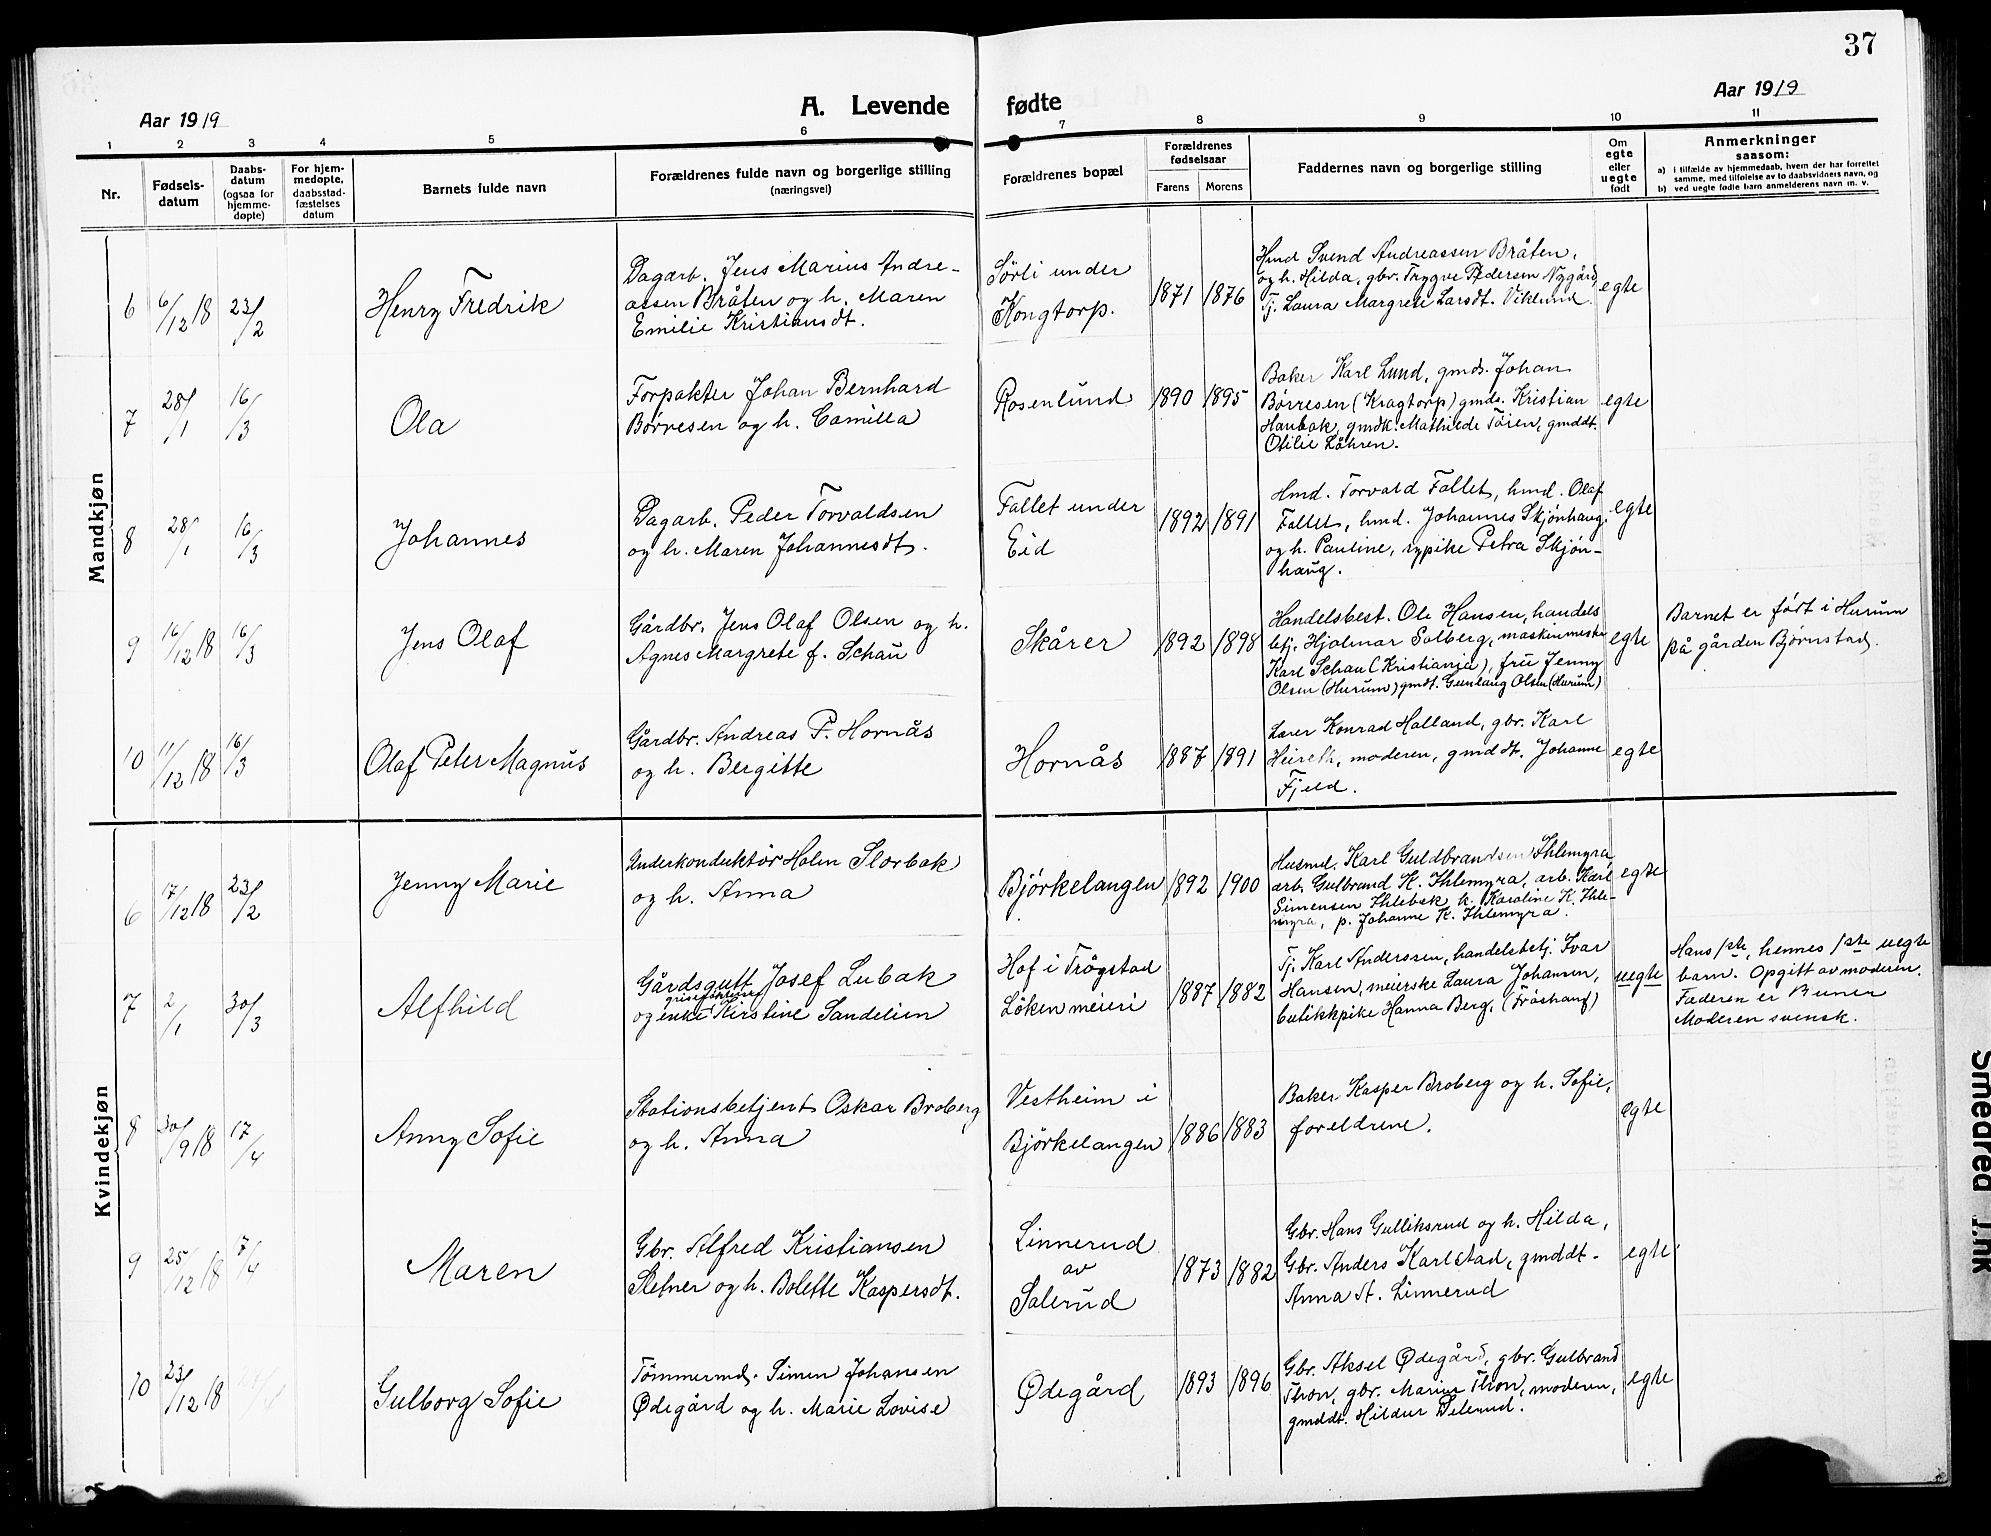 37
Aar 1919
A. Levende fødte
Aar 1919
1 2 3 4 5 6 7 8 9 10 11
Nr.
Fødsels-
datum
Daabs-
datum
(ogsaa for
hjemme-
døpte)
For hjem-
medøpte,
daabsstad-
fæstelses
datum
Barnets fulde navn
Forældrenes fulde navn og borgerlige stilling
(næringsvei)
Forældrenes bopæl
Forældrenes
fødselsaar
Farens Morens
Faddernes navn og borgerlige stilling
Om
egte
eller
uegte
født
Anmerkninger
saasom:
a) i tilfælde av hjemmedaab, hvem der har forrettet
samme, med tilføielse av to daabsvidners navn, og
b) ved uegte fødte barn anmelderens navn m. v.
Mandkjøn
6 6/12 18 23/2
Henry Fredrik
Dagarb. Jens Marius Andre-
assen Bråten og h. Maren
Emilie Kristiansdt.
Sörli under
Kongtorp.
1871 1876
Hmd Svend Andreassen Bråten,
og h. Hilda, gbr. Trygve Pedersen Nygård,
Tj. Laura Margrete Larsdt. Viklund.
egte
7 28/1 16/3
Ola
Forpakter Johan Bernhard
Börresen og h. Camilla
Rosenlund
1890 1895
Baker Karl Lund, gmds. Johan
Börresen (Kragtorp) gmds. Kristian
Haubak, gmdk. Mathilde Töien, gmddt.
Otilie Löhren.
egte
8 28/1 16/3
Johannes
Dagarb. Peder Torvaldsen
og h. Maren Johannesdt.
Fallet under
Eid
1892 1891
Hmd. Torvald Fallet, hmd. Olaf
Fallet, hmd. Johannes Skjönhaug,
og h. Pauline, sypike Petra Skjön-
haug.
egte
9 16/12 18 16/3
Jens Olaf
Gårdbr. Jens Olaf Olsen og h.
Agnes Margrete f. Schau
Skårer
1892 1898
Handelsbest. Ole Hansen, handels
betj. Hjalmar Solberg, maskinmester
Karl Schau (Kristiania), fru Jenny
Olsen (Hurum) gmdt. Gunlaug Olsen (Hurum)
egte
Barnet er född i Hurum
på gården Björnstad.
10 11/12 18 16/3
Olaf Peter Magnus
Gårdbr. Andreas P. Hornås
og h. Bergitte
Hornås
1887 1891
Lærer Konrad Holland, gbr. Karl
Heireth, moderen, gmddt. Johanne
Fjeld.
egte
Kvindekjøn
6 17/12 18 23/2
Jenny Marie
Underkonduktör Holm Slorbak
og h. Anna
Björkelangen
1892 1900
Husmd. Karl Guldbrandsen Ihlemyra
arb. Gulbrand K. Ihlemyra, arb. Karl
Simensen Ihlebæk k. Karoline K. Ihle-
myra, p. Johanne K. Ihlemyra.
egte
7 2/1 30/3
Alfhild
Gårdsgutt Josef Lubak
og enke Kirstine Sandelien
Hof i Trögstad
Löken meieri
1887 1882
Tj. Karl Anderssen, handelsbetj. Ivar
Hansen, meierske Laura Johansen,
butikkpike Hanna Berg,
uegte
Hans 1ste, hennes 1ste uegte
barn. Opgitt av moderen.
Faderen er
Moderen svensk.
8 30/9 18 17/4
Anny Sofie
Stationsbetjent Oskar Broberg
og h. Anna
Vestheim i
Björkelangen
1886 1883
Baker Kasper Broberg og h. Sofie,
foreldrene.
egte
9 25/12 18 17/4
Maren
Gbr. Alfred Kristiansen
Slefner og h. Bolette Kaspersdt.
Linnerud
av
Salerud
1873 1882
Gbr. Hans Gulliksrud og h. Hilda,
Gbr. Anders Karlstad, gmddt-
Anna A. Linnerud
egte
10 23/12 18
Gulborg Sofie
Tömmermd. Simen Johansen
Ødegård og h. Marie Lovise
Ødegård
1893 1896
Gbr. Aksel Ødegård, gbr. Gulbrand
Thon, gbr. Marius Thon, moderen,
gmddt. Hildur Delerud.
egte